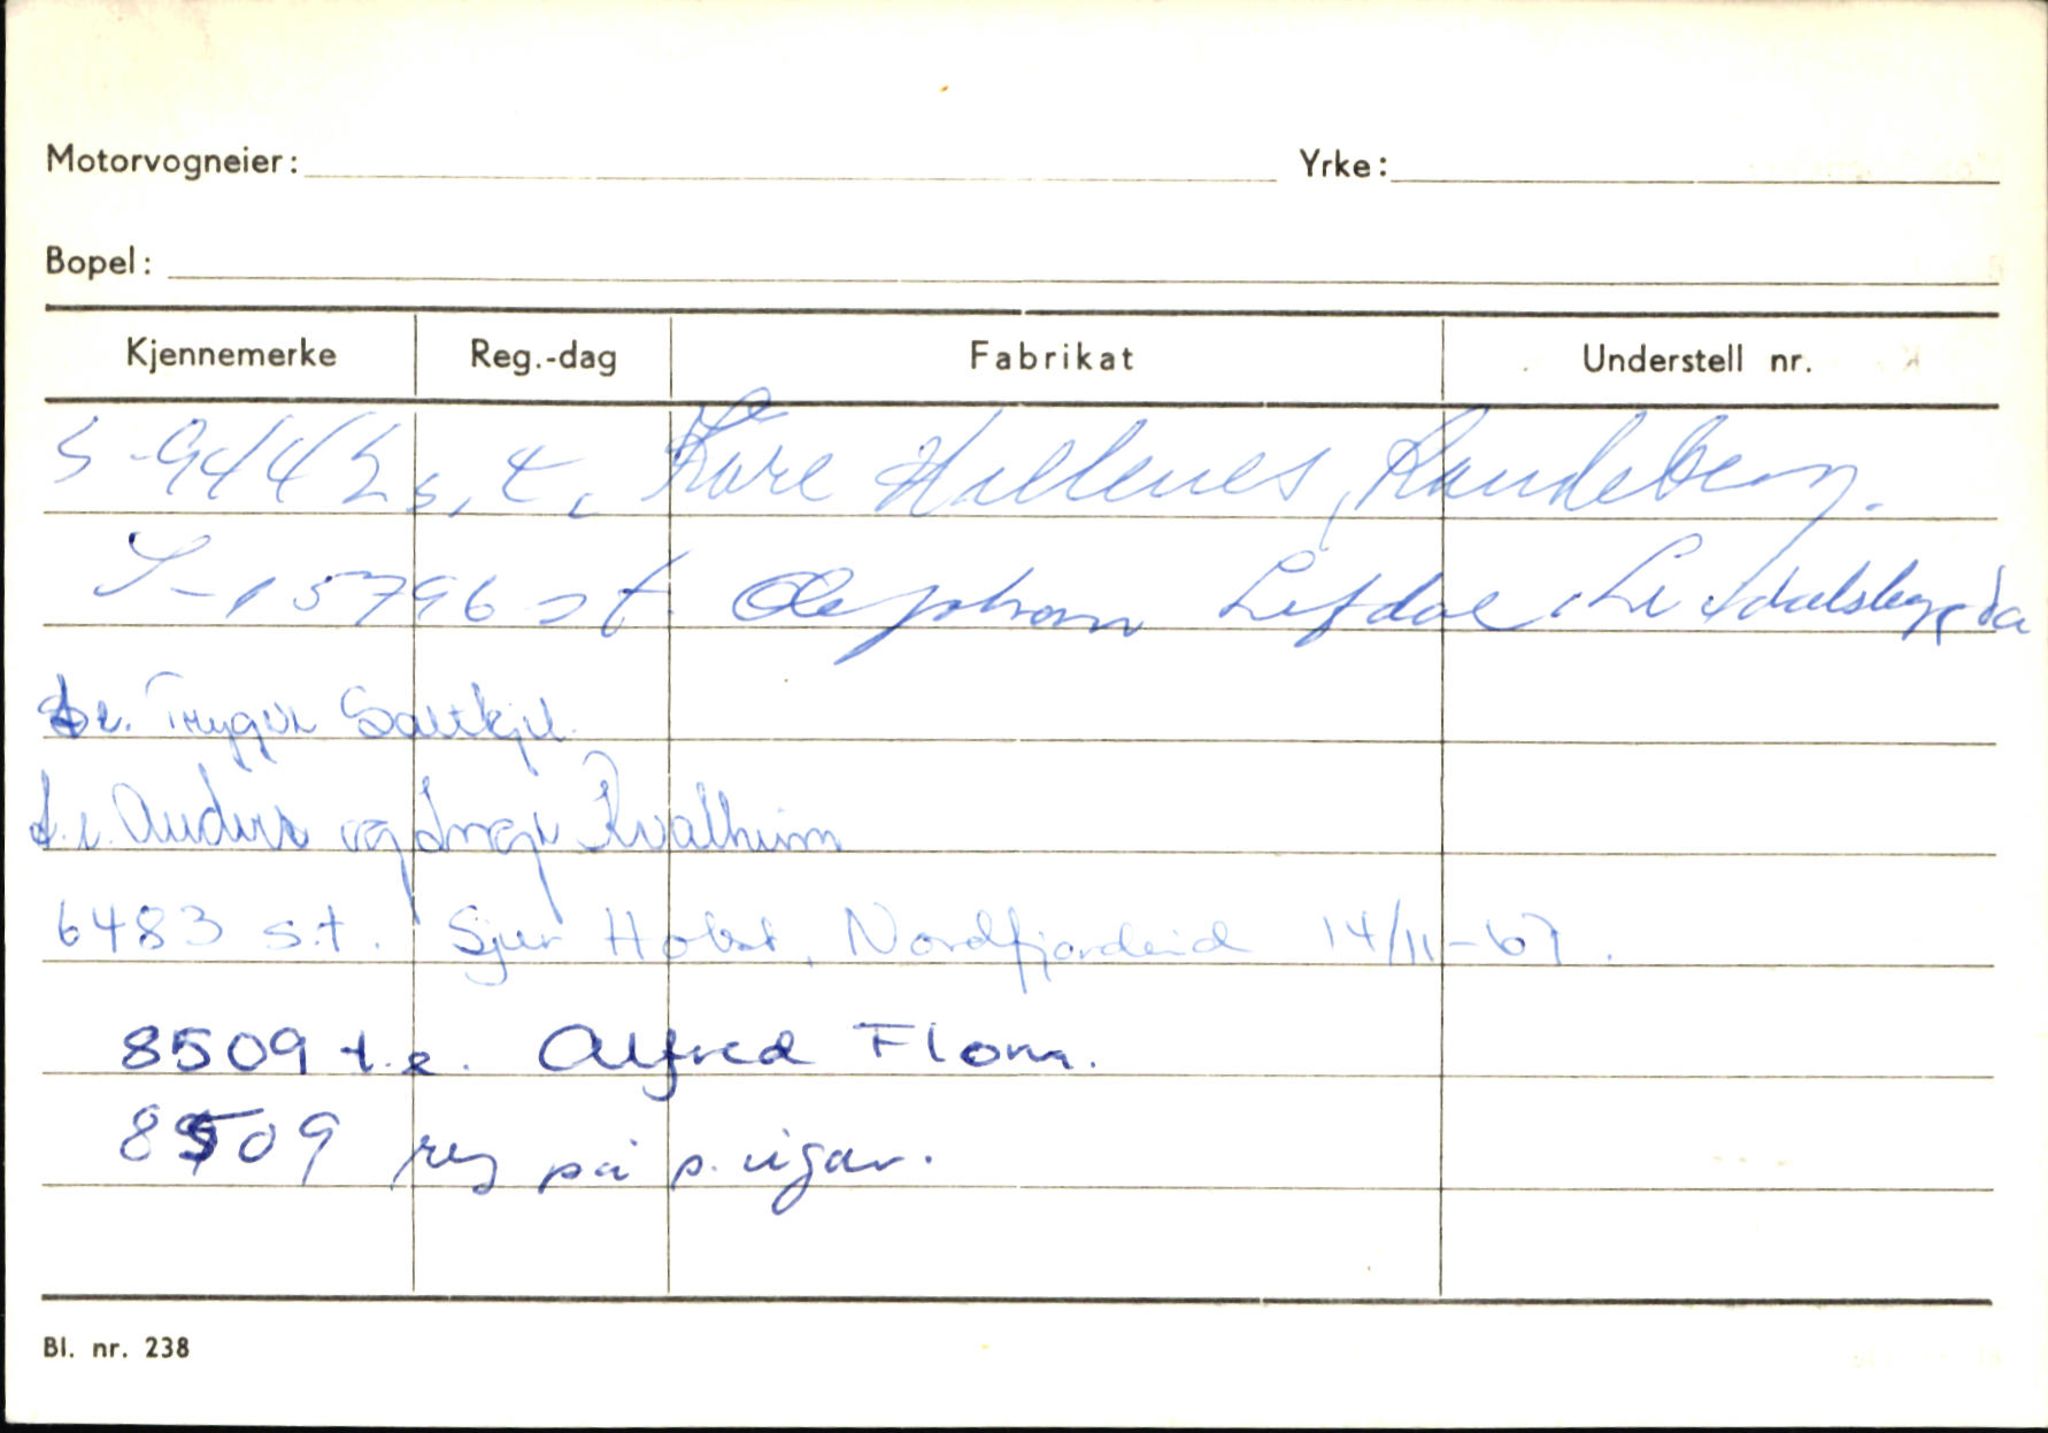 Motorvogneier: Yrke:
Bopel:
Kjennemerke Reg.-dag Fabrikat Understell nr.
S-94442 s.t. Kåre Hallenes, Randeberg.
S-15796 st. Ole Johan Lefdal
Trygve
Anders og Inge Kvalheim
6483 s.t. Sjur Hobst, Nordfjordeid 14/11-67.
8509 t.e. Alfred Flom.
8509 reg på p. eigar.
Bl. nr. 238